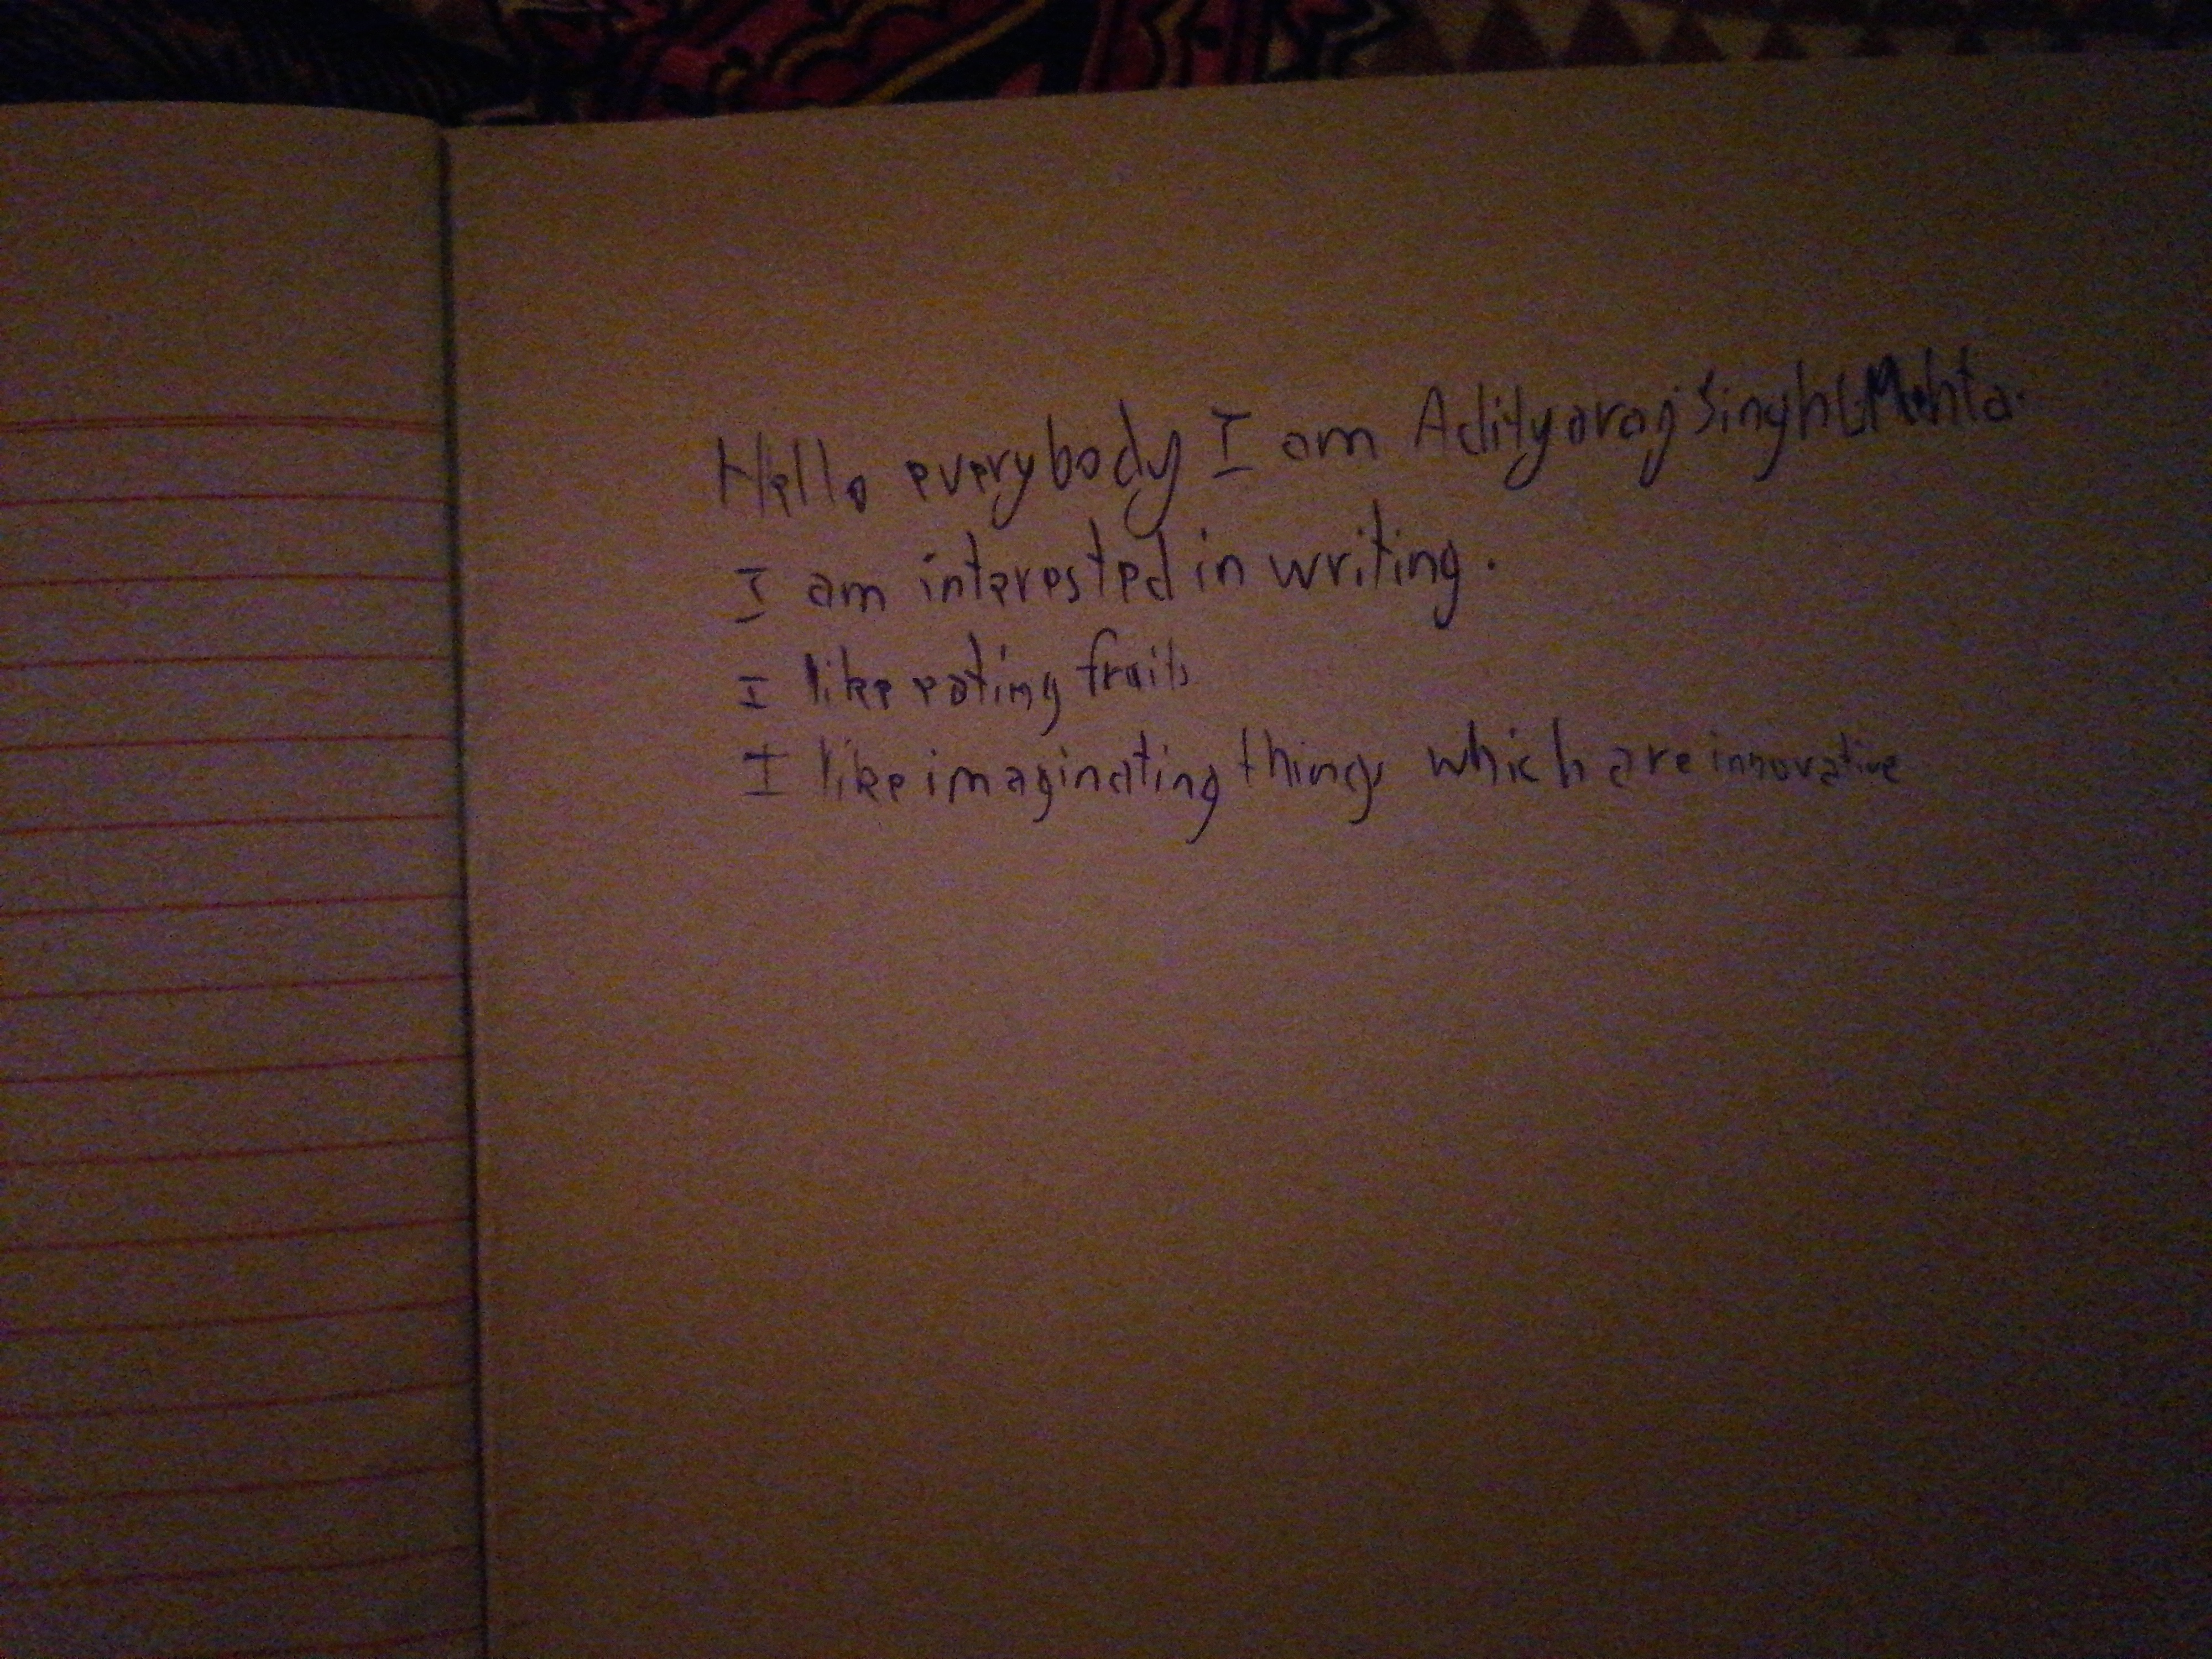 Hello everybody I am Adityaraj Singh Mehta.
I am interested in writing.
I like eating fruits
I like imaginating things which are innovative